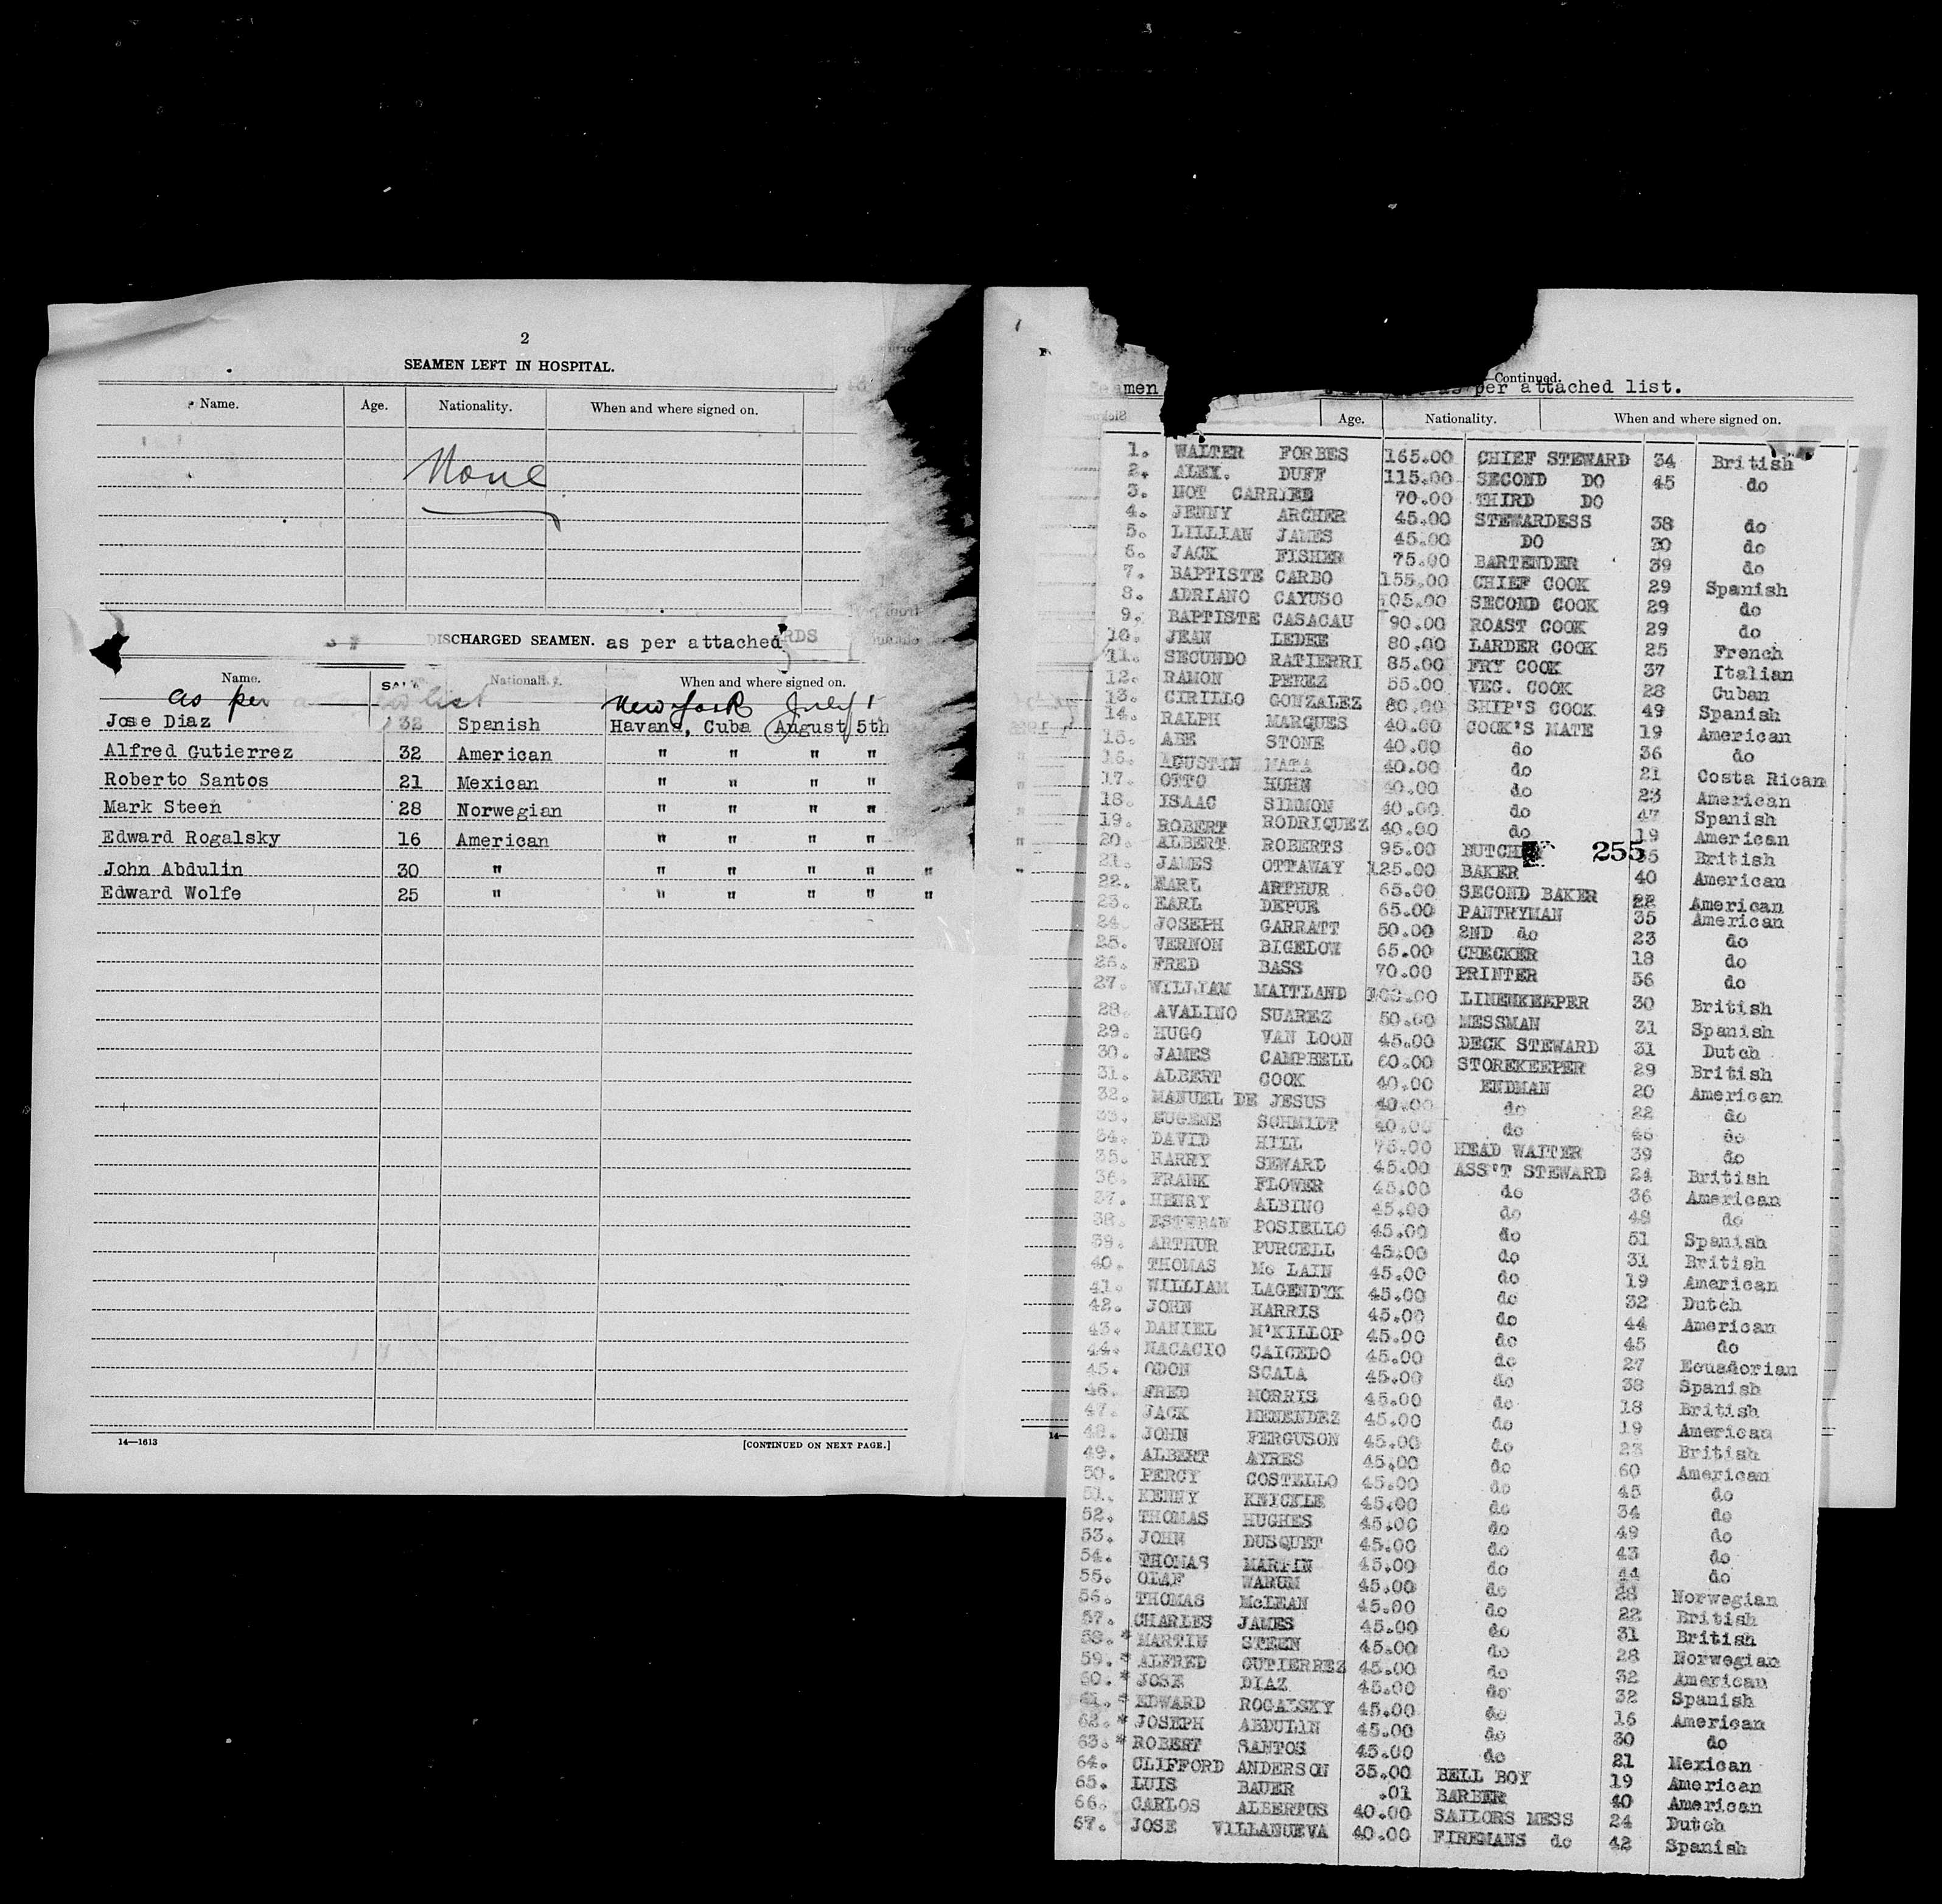 2
SEAMEN LEFT IN HOSPITAL.
Name. Age. Nationality. When and where signed on.
None
DISCHARGED SEAMEN. as per attached
Name. Nationality. When and where signed on.
as per list New York July 1
Jose Diaz 32 Spanish Havana, Cuba August 5th
Alfred Gutierrez 32 American " " " "
Roberto Santos 21 Mexican " " " "
Mark Steen 28 Norwegian " " " "
Edward Rogalsky 16 American " " " "
John Abdulin 30 " " " " " "
Edward Wolfe 25 " " " " " "
14—1613 [CONTINUED ON NEXT PAGE.]
—Continued.
Seamen as per attached list.
Age. Nationality. When and where signed on.
1. WALTER FORBES 165.00 CHIEF STEWARD 34 British
2. ALEX. DUFF 115.00 SECOND DO 45 do
3. NOT CARRIED 70.00 THIRD DO
4. JENNY ARCHER 45.00 STEWARDESS 38 do
5. LILLIAN JAMES 45.00 DO 30 do
6. JACK FISHER 75.00 BARTENDER 39 do
7. BAPTISTE CARBO 155.00 CHIEF COOK 29 Spanish
8. ADRIANO CAYUSO 105.00 SECOND COOK 29 do
9. BAPTISTE CASACAU 90.00 ROAST COOK 29 do
10. JEAN LEDEE 80.00 LARDER COOK 25 French
11. SECUNDO RATIERRI 85.00 FRY COOK 37 Italian
12. RAMON PEREZ 55.00 VEG. COOK 28 Cuban
13. CIRILLO GONZALEZ 80.00 SHIP'S COOK 49 Spanish
14. RALPH MARQUES 40.00 COOK'S MATE 19 American
15. ABE STONE 40.00 do 36 do
16. AGUSTIN MATA 40.00 do 21 Costa Rican
17. OTTO HUHN 40.00 do 23 American
18. ISAAC SIMMON 40.00 do 47 Spanish
19. ROBERT RODRIQUEZ 40.00 do 19 American
20. ALBERT ROBERTS 95.00 255 British
21. JAMES OTTAWAY 125.00 BAKER 40 American
22. EARL ARTHUR 65.00 SECOND BAKER 22 American
23. EARL DEPUE 65.00 PANTRYMAN 35 American
24. JOSEPH GARRATT 50.00 2ND do 23 do
25. VERNON BIGELOW 65.00 CHECKER 18 do
26. FRED BASS 70.00 PRINTER 56 do
27. WILLIAM MAITLAND LINENKEEPER 30 British
28. AVALINO SUAREZ 50.00 MESSMAN 31 Spanish
29. HUGO VAN LOON 45.00 DECK STEWARD 31 Dutch
30. JAMES CAMPBELL 60.00 STOREKEEPER 29 British
31. ALBERT COOK 40.00 ENDMAN 20 American
32. MANUEL DE JESUS 40.00 do 22 do
33. EUGENE SCHMIDT 40.00 do do
34. DAVID HILL 75.00 HEAD WAITER 39 do
35. HARRY SEWARD 45.00 ASS'T STEWARD 24 British
36. FRANK FLOWER 45.00 do 36 American
37. HENRY ALBINO 45.00 do 48 do
38. ESTEBAN POSIELLO 45.00 do 51 Spanish
39. ARTHUR PURCELL 45.00 do 31 British
40. THOMAS Mc LAIN 45.00 do 19 American
41. WILLIAM LAGENDYK 45.00 do 32 Dutch
42. JOHN HARRIS 45.00 do 44 American
43. DANIEL M'KILLOP 45.00 do 45 do
44. NACACIO CAICEDO 45.00 do 27 Ecuadorian
45. ODON SCALA 45.00 do 38 Spanish
46. FRED MORRIS 45.00 do 18 British
47. JACK MENENDEZ 45.00 do 19 American
48. JOHN FERGUSON 45.00 do 23 British
49. ALBERT AYRES 45.00 do 60 American
50. PERCY COSTELLO 45.00 do 45 do
51. KENNY KNICKLE 45.00 do 34 do
52. THOMAS HUGHES 45.00 do 49 do
53. JOHN DUSQUET 45.00 do 43 do
54. THOMAS MARTIN 45.00 do 44 do
55. OLAF WARUM 45.00 do 28 Norwegian
56. THOMAS McLEAN 45.00 do 22 British
57. CHARLES JAMES 45.00 do 31 British
58. * MARTIN STEEN 45.00 do 28 Norwegian
59. * ALFRED GUTIERREZ 45.00 do 32 American
60. * JOSE DIAZ 45.00 do 32 Spanish
61. * EDWARD ROGALSKY 45.00 do 16 American
62. * JOSEPH ABDULIN 45.00 do 30 do
63. * ROBERT SANTOS 45.00 do 21 Mexican
64. CLIFFORD ANDERSON 35.00 BELL BOY 19 American
65. LUIS BAUER .01 BARBER 40 American
66. CARLOS ALBERTUS 40.00 SAILORS MESS 24 Dutch
67. JOSE VILLANUEVA 40.00 FIREMANS do 42 Spanish